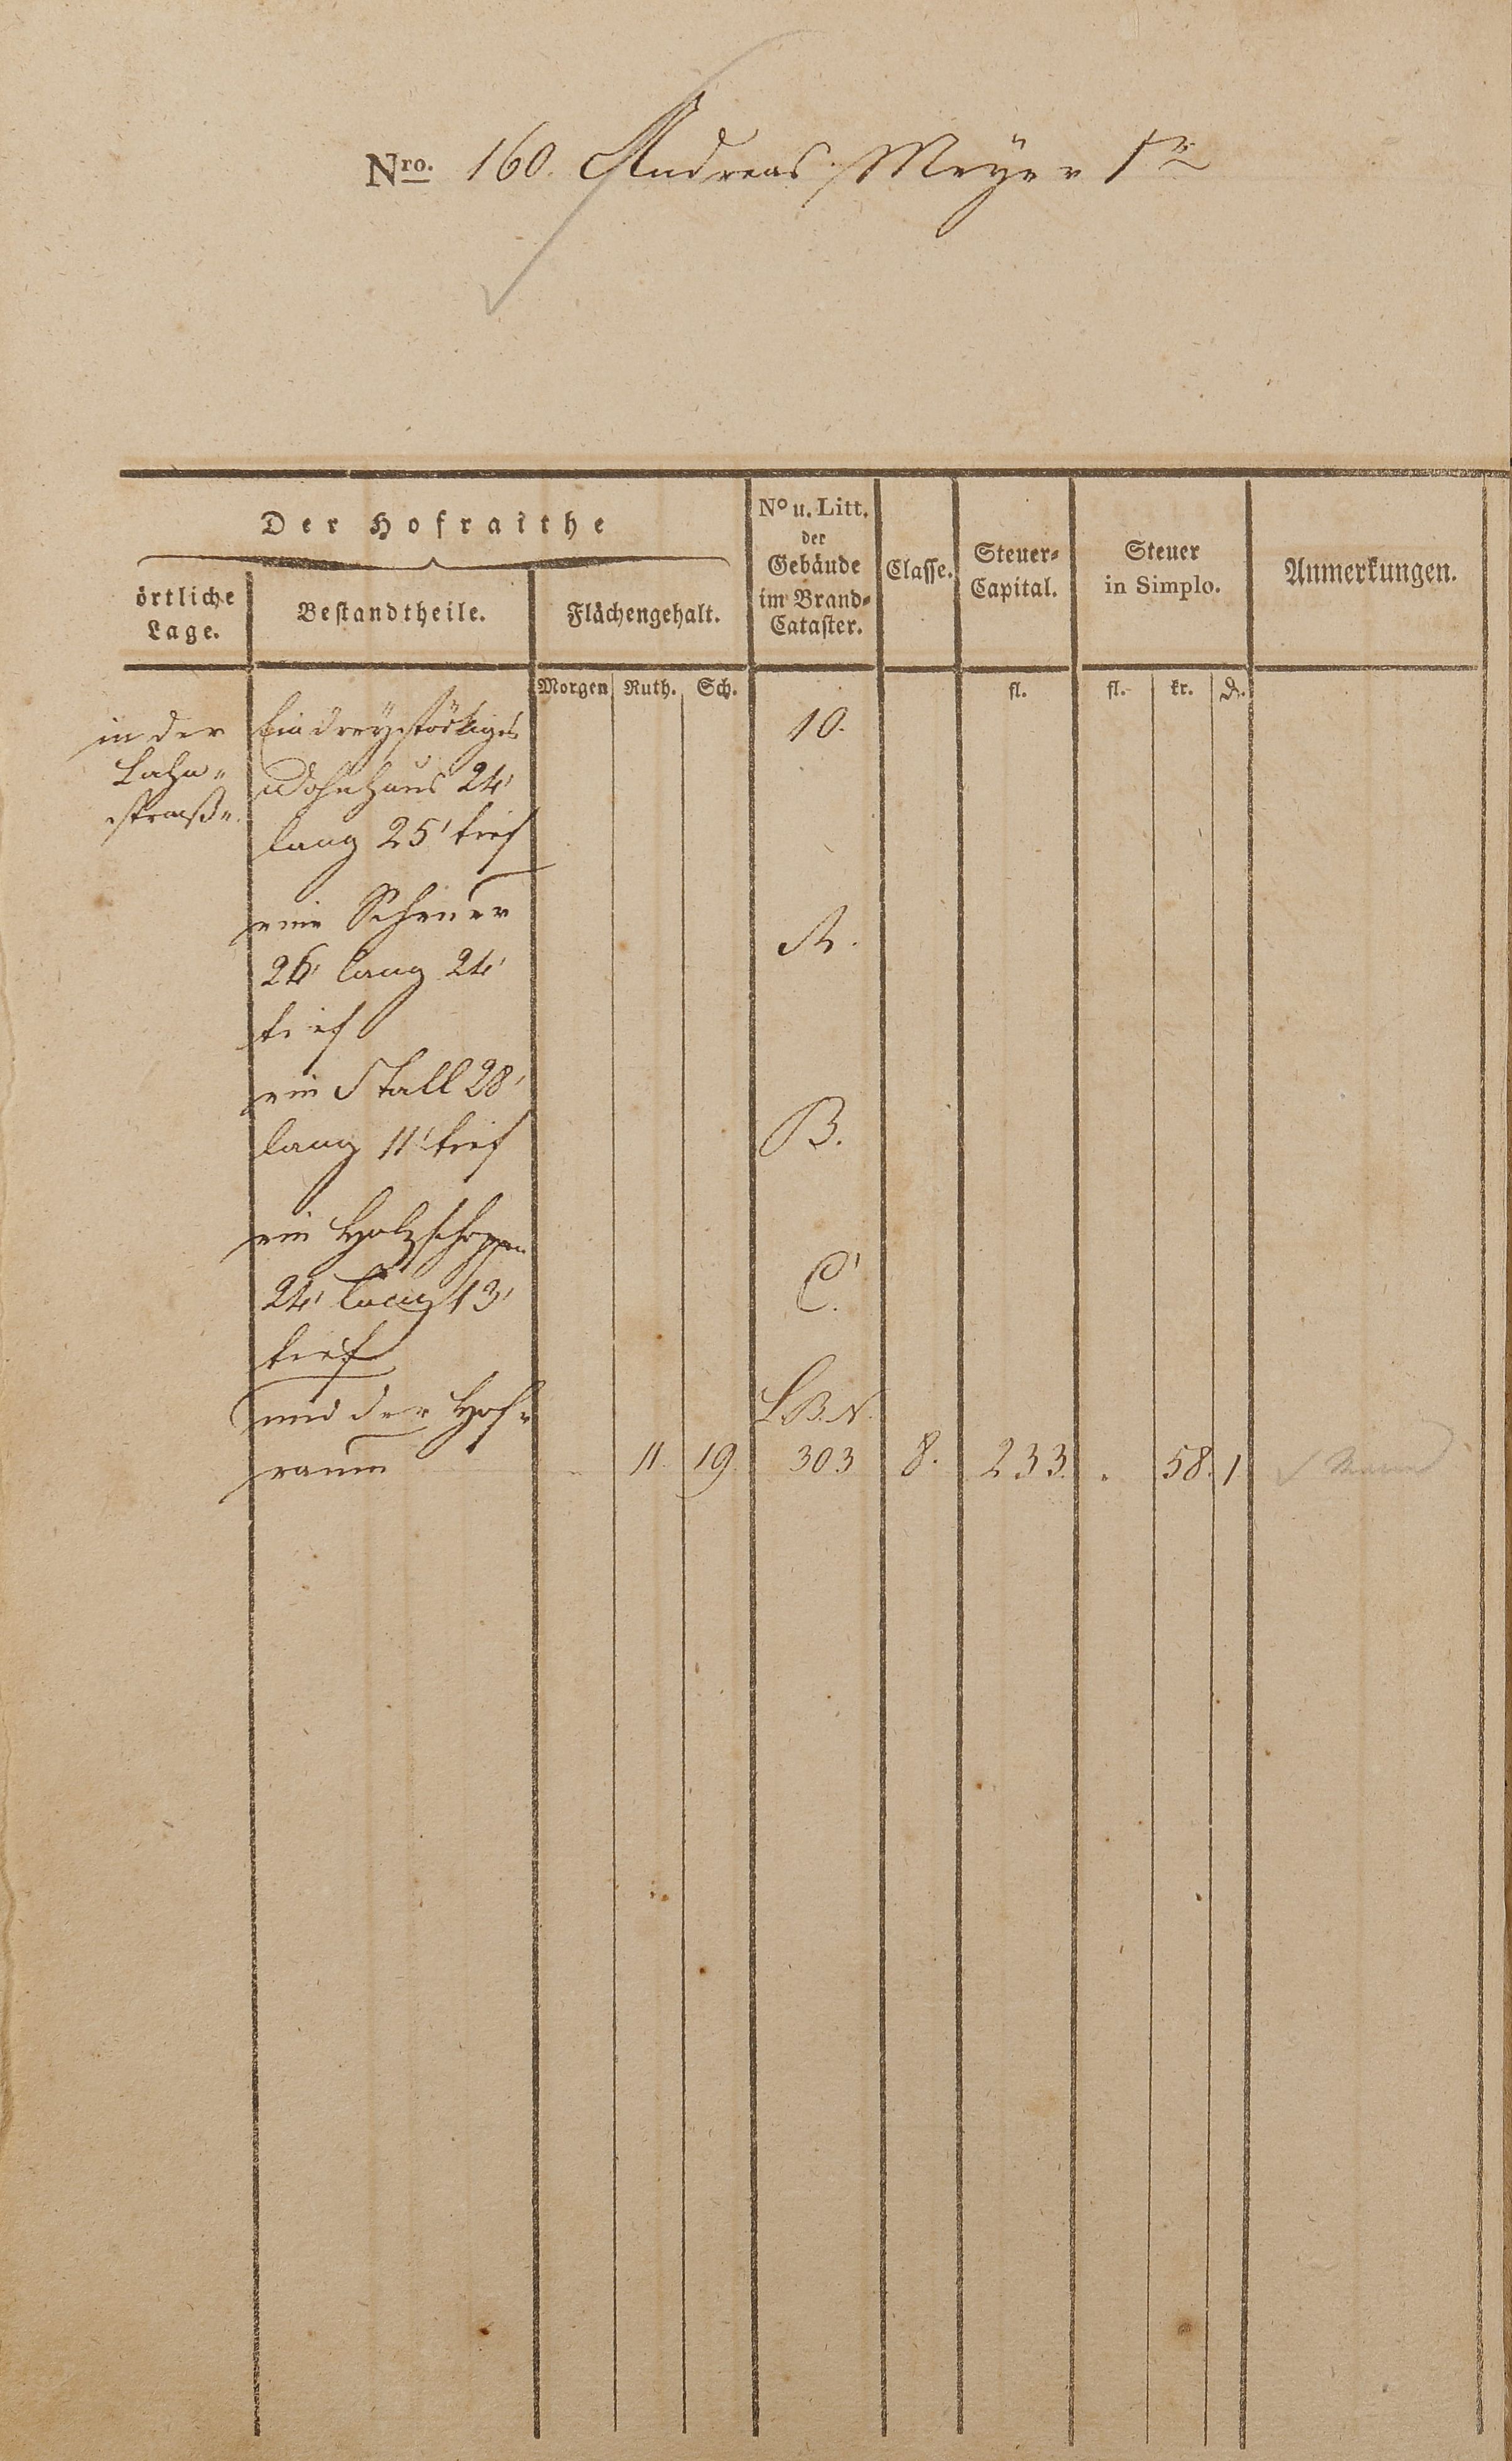 Nro. 160. Andreas Meyer 1r
Der Hofraithe
örtliche Lage.
Bestandtheile.
Flächengehalt.
No u. Litt. der Gebäude im Brand-Cataster.
Classe.
Steuer-Capital.
Steuer in Simplo.
Anmerkungen.
Morgen Ruth. Sch. fl. fl. kr. d.
in der Ein dreystöckiges 10.
Lahn- Wohnhaus 24'
straße. lang 25' tief
eine Scheuer A.
26' lang 24'
tief
ein Stall 28'
lang 11' tief B.
ein Holzschoppen
24' lang 13' C.
tief
und der Hof- L.B.N.
raum 11. 19. 303 8. 233. 58. 1